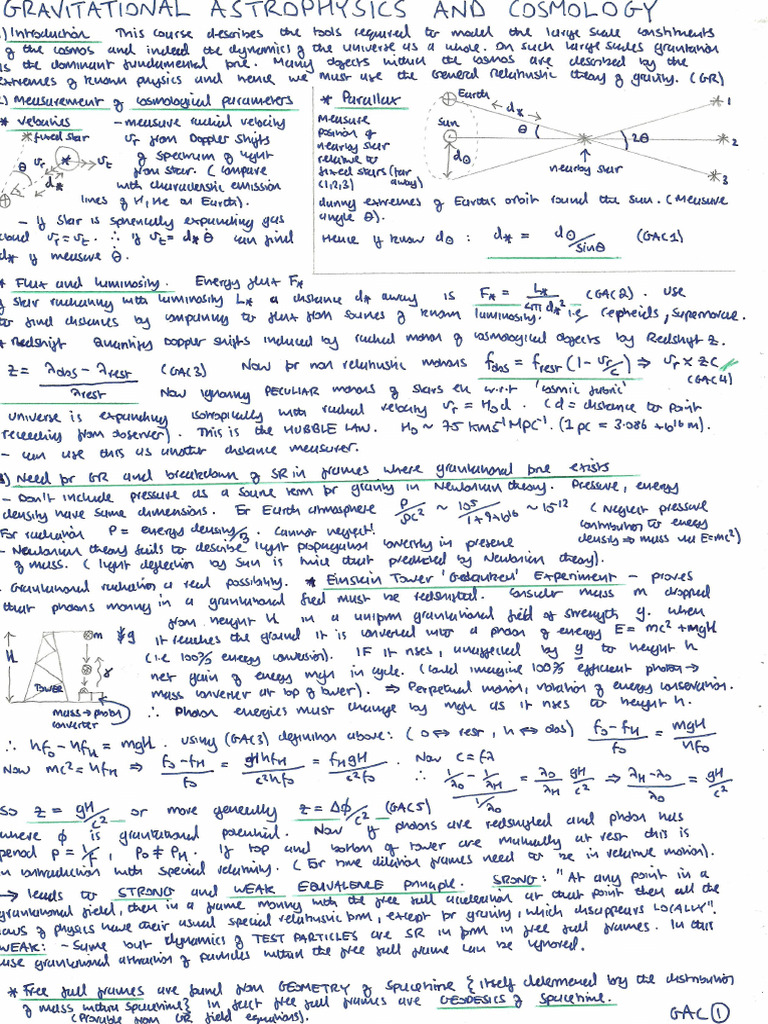 GRAVITATIONAL ASTROPHYSICS AND COSMOLOGY
1) Introduction This course describes the tools required to model the large scale constituents
of the cosmos and indeed the dynamics of the universe as a whole. On such large scales gravitation
is the dominant fundamental force. Many objects within the cosmos are described by the
extremes of known physics and hence we must use the General relativistic theory of gravity. (GR)
2) Measurement of cosmological parameters
* Velocities - measure radial velocity
* fixed star vr from Doppler shifts
of spectrum of light
from star. (compare
with characteristic emission
lines of H, He on Earth).
θ vr vt d*
- If star is spherically expanding gas
cloud vr = vt. ∴ if vt = d* θ̇ can find
d* if measure θ̇.
* Parallax
Measure
position of
nearby star
relative to
fixed stars (far
(1,2,3) away)
during extremes of Earth's orbit round the sun. (Measure
angle θ).
Hence if know d⊙ : d* = d⊙/sinθ (GAC1)
Earth
Sun
d*
θ
2θ
d⊙
nearby star
1
2
3
* Flux and luminosity. Energy flux F*
of star radiating with luminosity L* a distance d* away is F* = L*/4π d*² (GAC2). Use
to find distances by comparing to flux from sources of known luminosity. i.e. Cepheids, Supernovae.
* Redshift Quantify Doppler shifts induced by radial motion of cosmological objects by Redshift z.
z = λobs - λrest / λrest (GAC3) Now for non relativistic motions fobs = frest (1 - vr/c) ⇒ vr ≈ zc
(GAC4)
Now ignoring PECULIAR motions of stars etc w.r.t 'cosmic fabric'
universe is expanding isotropically with radial velocity vr = H0d. (d = distance to point
receeding from observer). This is the HUBBLE LAW. H0 ~ 75 kms⁻¹ MPC⁻¹. (1pc = 3.086 × 10¹⁶ m).
- can use this as another distance measurer.
3) Need for GR and breakdown of SR in frames where gravitational force exists
- Don't include pressure as a source term for gravity in Newtonian theory. Pressure, energy
density have same dimensions. For Earth atmosphere P/ρc² ~ 10⁵/1×9×10¹⁶ ~ 10⁻¹² (Neglect pressure
contribution to energy
density ⇒ mass via E=mc²)
For radiation P = energy density/3. Cannot neglect!
- Newtonian theory fails to describe light propagation correctly in presence
of mass. (light deflection by Sun is twice that predicted by Newtonian theory).
- Gravitational radiation a real possibility. * Einstein Tower 'Gedanken' Experiment - proves
that photons moving in a gravitational field must be redshifted. Consider mass m dropped
from height H in a uniform gravitational field of strength g. When
it reaches the ground it is converted into a photon of energy E = mc² + mgH
(i.e 100% energy conversion). IF it rises, unaffected by g to height h
net gain of energy mgh in cycle. (could imagine 100% efficient photon →
mass converter at top of tower). ⇒ Perpetual motion, violation of energy conservation.
∴ Photon energies must change by mgh as it rises to height h.
H
m
g
γ
TOWER
mass → photon
converter
∴ hf0 - hfH = mgH. Using (GAC3) definition above: (0 ↔ rest, h ↔ obs) f0 - fH / f0 = mgH / hf0
Now mc² = hfH ⇒ f0 - fH / f0 = gHhfH / c²hf0 = fHgH / c²f0 . Now c = fλ
∴ 1/λ0 - 1/λH / 1/λ0 = λ0/λH gH/c² ⇒ λH - λ0 / λ0 = gH/c²
So z = gH/c² or more generally z = Δϕ/c² (GAC5)
where ϕ is gravitational potential. Now if photons are redshifted and photon has
period P = 1/f, P0 ≠ PH. If top and bottom of tower are mutually at rest this is
in contradiction with special relativity. (For time dilation frames need to be in relative motion).
→ leads to STRONG and WEAK EQUIVALENCE Principle. SRONG: "At any point in a
gravitational field, then in a frame moving with the free fall acceleration at that point then all the
laws of physics have their usual special relativistic form, except for gravity, which disappears LOCALLY".
WEAK: - Same but dynamics of TEST PARTICLES are SR in form in free fall frames. In this
case gravitational attraction of particles within the free fall frame can be ignored.
* Free fall frames are found from GEOMETRY of spacetime {itself determined by the distribution
of mass within spacetime} in fact free fall frames are GEODESICS of spacetime.
(Provable from GR field equations).
GAC 1